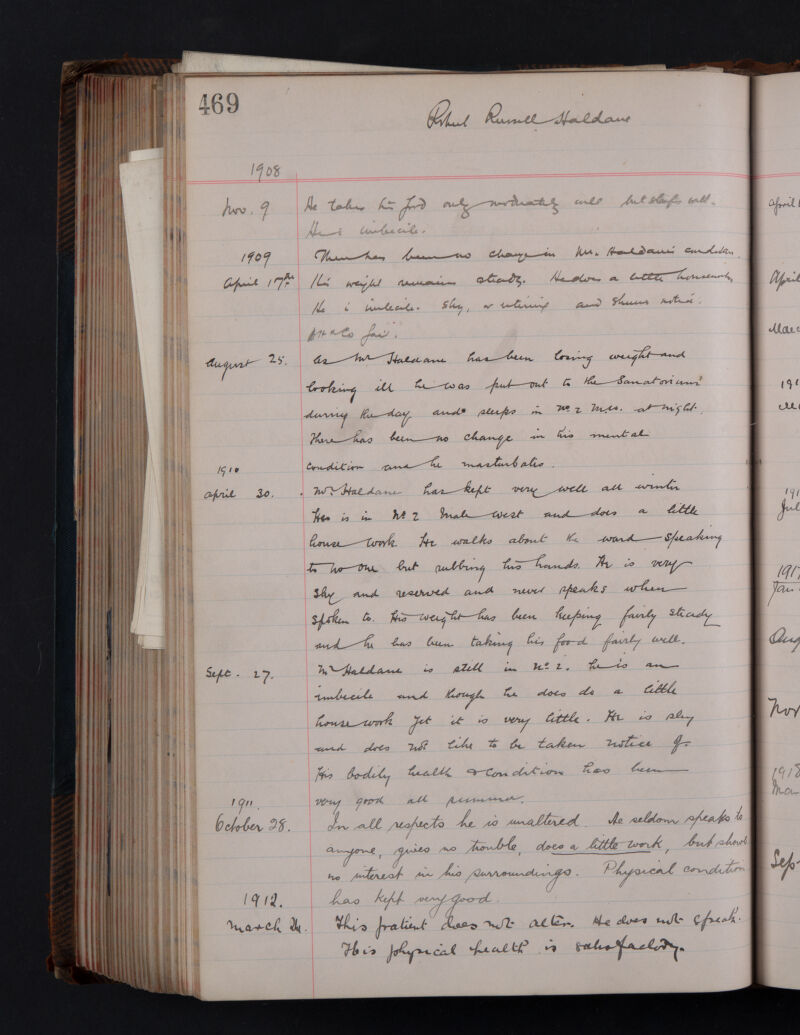 469
Robert Russell Haldane
1908
Nov. 9 He takes his food only moderately well but sleeps well.
He is imbecile.
1909 There has been no change in Mr. Haldane's condition.
April 17th His weight remains steady. He does a little housework
He is imbecile. Shy, and shuns notice.
fair.
August 25. As Mr Haldane has been losing weight and
looking ill he was put out to the Sanatorium
during the day and sleeps in No. 2 at night.
There has been no change in his mental
1910 condition and he masturbates.
April 30. Mr. Haldane has kept very well all winter
He is in No 2 Male West and does a little
house work. He walks about the ward speaking
to no one but rubbing his hands. He is very
shy and reserved and never speaks when
spoken to. His weight has been keeping fairly steady
and he has been taking his food fairly well.
Sept. 27. Mr Haldane is still in No. 2. he is an
imbecile and though he does do a little
house work yet it is very little. He is shy
and does not like to be taken notice of.
His bodily health & condition has been
1911. very good all summer.
October 28. In all respects he is unaltered. He seldom speaks to
anyone, gives no trouble, does a little work, but shows
no interest in his surroundings. Physical condition
1912. has kept very good.
March 24. This patient does not alter. He does not speak.
His physical health is satisfactory.
April
April
191
191
Jul
1917
Jan
Aug
Nov
1918
Mar
Sep